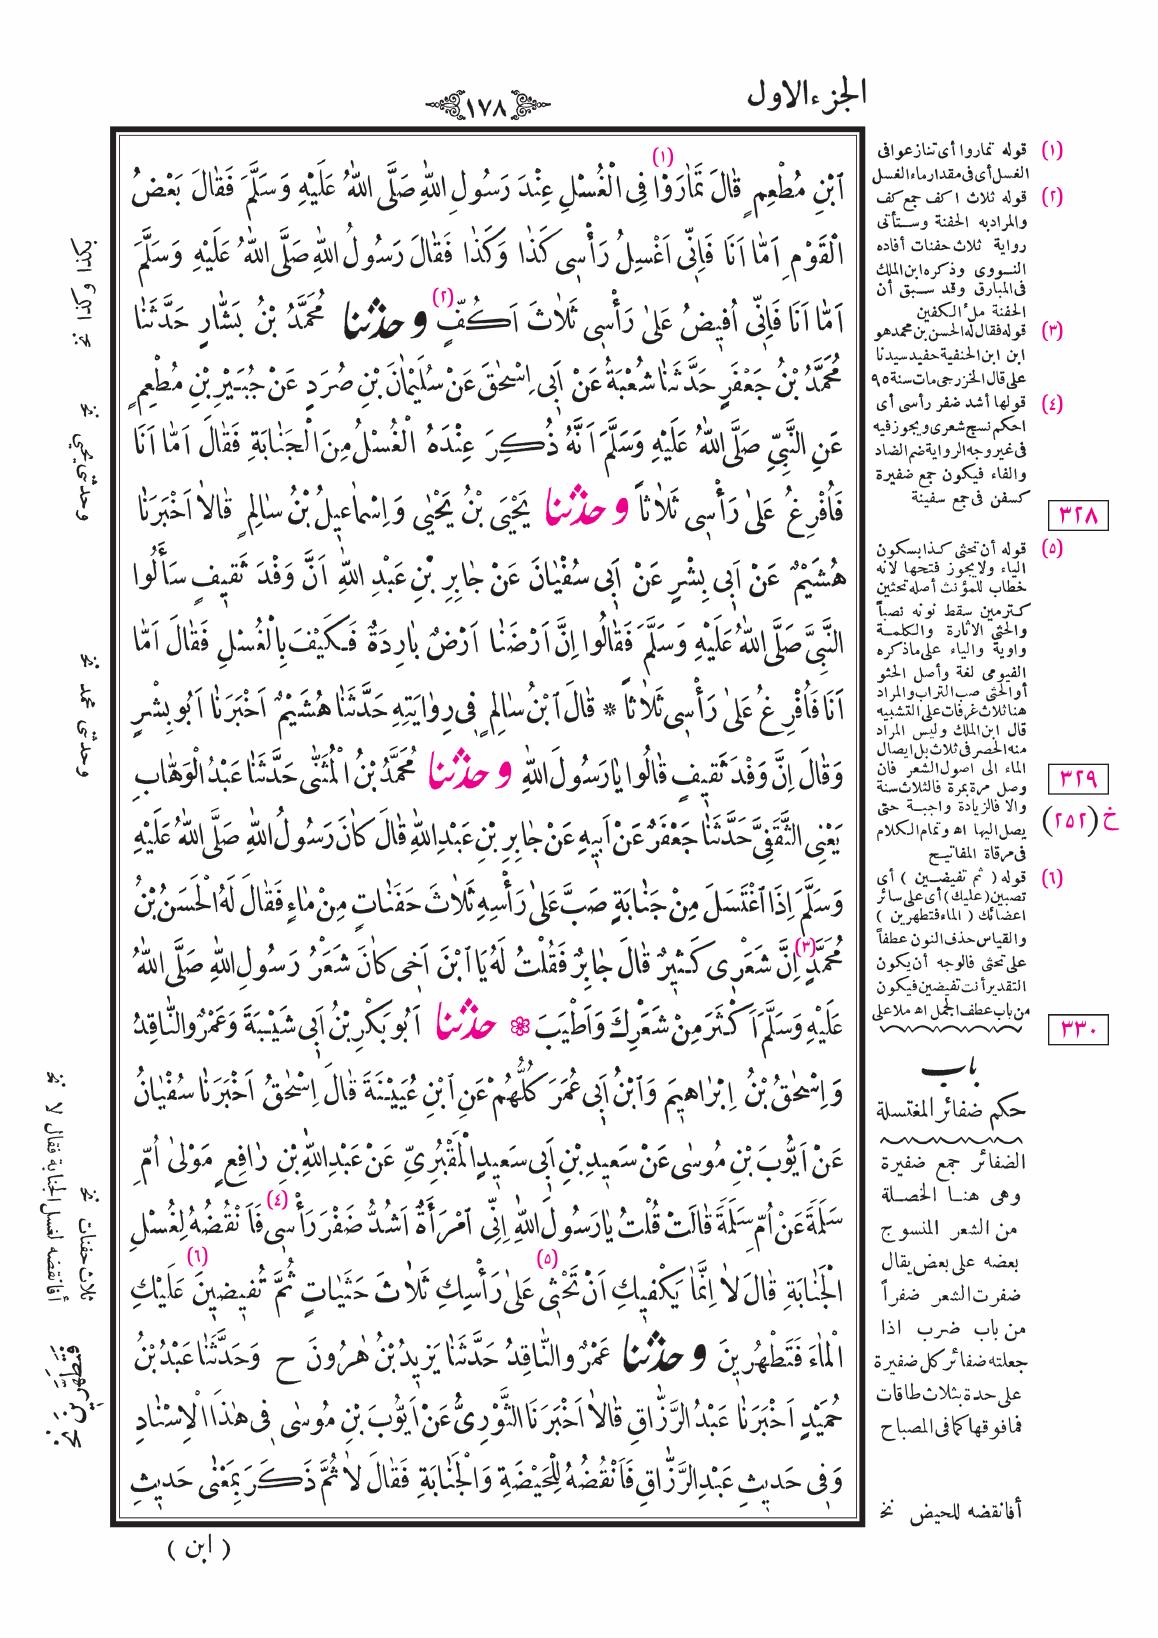 الجزء الاول
١٧٨
ٱبْنِ مُطْعِمٍ قَالَ تَمَارَوْا (١) فِى الْغُسْلِ عِنْدَ رَسُولِ اللّٰهِ صَلَّى اللّٰهُ عَلَيْهِ وَسَلَّمَ فَقَالَ بَعْضُ
الْقَوْمِ اَمَّا اَنَا فَاِنِّى اَغْسِلُ رَأْسِى كَذَا وَكَذَا فَقَالَ رَسُولُ اللّٰهِ صَلَّى اللّٰهُ عَلَيْهِ وَسَلَّمَ
اَمَّا اَنَا فَاِنِّى اُفِيضُ عَلىٰ رَأْسِى ثَلاٰثَ اَكُفٍّ (٢) وحدثنا مُحَمَّدُ بْنُ بَشَّارٍ حَدَّثَنَا
مُحَمَّدُ بْنُ جَعْفَرٍ حَدَّثَنَا شُعْبَةُ عَنْ اَبِى اِسْحٰقَ عَنْ سُلَيْمَانَ بْنِ صُرَدٍ عَنْ جُبَيْرِ بْنِ مُطْعِمٍ
عَنِ النَّبِيِّ صَلَّى اللّٰهُ عَلَيْهِ وَسَلَّمَ اَنَّهُ ذُكِرَ عِنْدَهُ الْغُسْلُ مِنَ الْجَنَابَةِ فَقَالَ اَمَّا اَنَا
فَاُفْرِغُ عَلىٰ رَأْسِى ثَلاٰثاً وحدثنا يَحْيَى بْنُ يَحْيٰى وَاِسْمَاعِيلُ بْنُ سَالِمٍ قَالاَ اَخْبَرَنَا
هُشَيْمٌ عَنْ اَبِى بِشْرٍ عَنْ اَبِى سُفْيَانَ عَنْ جَابِرِ بْنِ عَبْدِ اللّٰهِ اَنَّ وَفْدَ ثَقِيفٍ سَأَلُوا
النَّبِىَّ صَلَّى اللّٰهُ عَلَيْهِ وَسَلَّمَ فَقَالُوا اِنَّ اَرْضَنَا اَرْضٌ بَارِدَةٌ فَكَيْفَ بِالْغُسْلِ فَقَالَ اَمَّا
اَنَا فَاُفْرِغُ عَلىٰ رَأْسِى ثَلاٰثاً * قَالَ ٱبْنُ سَالِمٍ فِى رِوَايَتِهِ حَدَّثَنَا هُشَيْمٌ اَخْبَرَنَا اَبُو بِشْرٍ
وَقَالَ اِنَّ وَفْدَ ثَقِيفٍ قَالُوا يَا رَسُولَ اللّٰهِ وحدثنا مُحَمَّدُ بْنُ الْمُثَنّٰى حَدَّثَنَا عَبْدُ الْوَهَّابِ
يَعْنِى الثَّقَفِىَّ حَدَّثَنَا جَعْفَرٌ عَنْ اَبِيهِ عَنْ جَابِرِ بْنِ عَبْدِ اللّٰهِ قَالَ كَانَ رَسُولُ اللّٰهِ صَلَّى اللّٰهُ عَلَيْهِ
وَسَلَّمَ اِذَا ٱغْتَسَلَ مِنْ جَنَابَةٍ صَبَّ عَلىٰ رَأْسِهِ ثَلاٰثَ حَفَنَاتٍ مِنْ مَاءٍ فَقَالَ لَهُ الْحَسَنُ بْنُ
مُحَمَّدٍ (٣) اِنَّ شَعْرِى كَثِيرٌ قَالَ جَابِرٌ فَقُلْتُ لَهُ يَا ٱبْنَ اَخِى كَانَ شَعْرُ رَسُولِ اللّٰهِ صَلَّى اللّٰهُ
عَلَيْهِ وَسَلَّمَ اَكْثَرَ مِنْ شَعْرِكَ وَاَطْيَبَ حدثنا اَبُو بَكْرِ بْنُ اَبِى شَيْبَةَ وَعَمْرٌو النَّاقِدُ
وَاِسْحٰقُ بْنُ اِبْرَاهِيمَ وَٱبْنُ اَبِى عُمَرَ كُلُّهُمْ عَنِ ٱبْنِ عُيَيْنَةَ قَالَ اِسْحٰقُ اَخْبَرَنَا سُفْيَانُ
عَنْ اَيُّوبَ بْنِ مُوسٰى عَنْ سَعِيدِ بْنِ اَبِى سَعِيدٍ الْمَقْبُرِىِّ عَنْ عَبْدِ اللّٰهِ بْنِ رَافِعٍ مَوْلىٰ اُمِّ
سَلَمَةَ عَنْ اُمِّ سَلَمَةَ قَالَتْ قُلْتُ يَا رَسُولَ اللّٰهِ اِنِّى ٱمْرَأَةٌ اَشُدُّ ضَفْرَ رَأْسِى (٤) فَاَنْقُضُهُ لِغُسْلِ
الْجَنَابَةِ قَالَ لاٰ اِنَّمَا يَكْفِيكِ اَنْ تَحْثِى (٥) عَلىٰ رَأْسِكِ ثَلاٰثَ حَثَيَاتٍ ثُمَّ تُفِيضِينَ (٦) عَلَيْكِ
الْمَاءَ فَتَطْهُرِينَ وحدثنا عَمْرٌو النَّاقِدُ حَدَّثَنَا يَزِيدُ بْنُ هٰرُونَ ح وَحَدَّثَنَا عَبْدُ بْنُ
حُمَيْدٍ اَخْبَرَنَا عَبْدُ الرَّزَّاقِ قَالاَ اَخْبَرَنَا الثَّوْرِىُّ عَنْ اَيُّوبَ بْنِ مُوسٰى فِى هٰذَا الْاِسْنَادِ
وَفِى حَدِيثِ عَبْدِ الرَّزَّاقِ فَاَنْقُضُهُ لِلْحَيْضَةِ وَالْجَنَابَةِ فَقَالَ لاٰ ثُمَّ ذَكَرَ بِمَعْنٰى حَدِيثِ
( ابن )
(١) قوله تماروا أى تنازعوا فى
الغسل أى فى مقدار ماء الغسل
(٢) قوله ثلاث اكف جمع كف
والمراد به الحفنة وستأتى
رواية ثلاث حفنات أفاده
النووى وذكره ابن الملك
فى المبارق وقد سبق أن
الحفنة ملء الكفين
(٣) قوله فقال له الحسن بن محمد هو
ابن ابن الحنفية حفيد سيدنا
على قال الخزرجى مات سنة ٩٥
(٤) قولها أشد ضفر رأسى أى
احكم نسج شعرى ويجوز فيه
فى غير وجه الرواية ضم الضاد
والفاء فيكون جمع ضفيرة
كسفن فى جمع سفينة
٣٢٨
(٥) قوله أن تحثى كذا بسكون
الياء ولا يجوز فتحها لانه
خطاب للمؤنث أصله تحثين
كترمين سقط نونه نصباً
والحثى الاثارة والكلمة
واوية والياء على ما ذكره
الفيومى لغة وأصل الحثو
أو الحثى صب التراب والمراد
هنا ثلاث غرفات على التشبيه
قال ابن الملك وليس المراد
منه الحصر فى ثلاث بل ايصال
الماء الى اصول الشعر فان
وصل مرة بمرة فالثلاث سنة
والا فالزيادة واجبة حتى
يصل اليها اه وتمام الكلام
فى مرقاة المفاتيح
٣٢٩
خ (٢٥٢)
(٦) قوله ( ثم تفيضين ) أى
تصبين (عليك) أى على سائر
اعضائك ( الماء فتطهرين )
والقياس حذف النون عطفاً
على تحثى فالوجه أن يكون
التقدير أنت تفيضين فيكون
من باب عطف الجمل اه ملا على
٣٣٠
باب
حكم ضفائر المغتسلة
الضفائر جمع ضفيرة
وهى هنا الخصلة
من الشعر المنسوج
بعضه على بعض يقال
ضفرت الشعر ضفراً
من باب ضرب اذا
جعلته ضفائر كل ضفيرة
على حدة بثلاث طاقات
فما فوقها كما فى المصباح
أفانقضه للحيض نخ
بكذا وكذا نخ
وحدثنى يحيى نخ
وحدثنى محمد نخ
ثلاث حفنات نخ
أفانقضه لغسل الجنابة فقال لا نخ